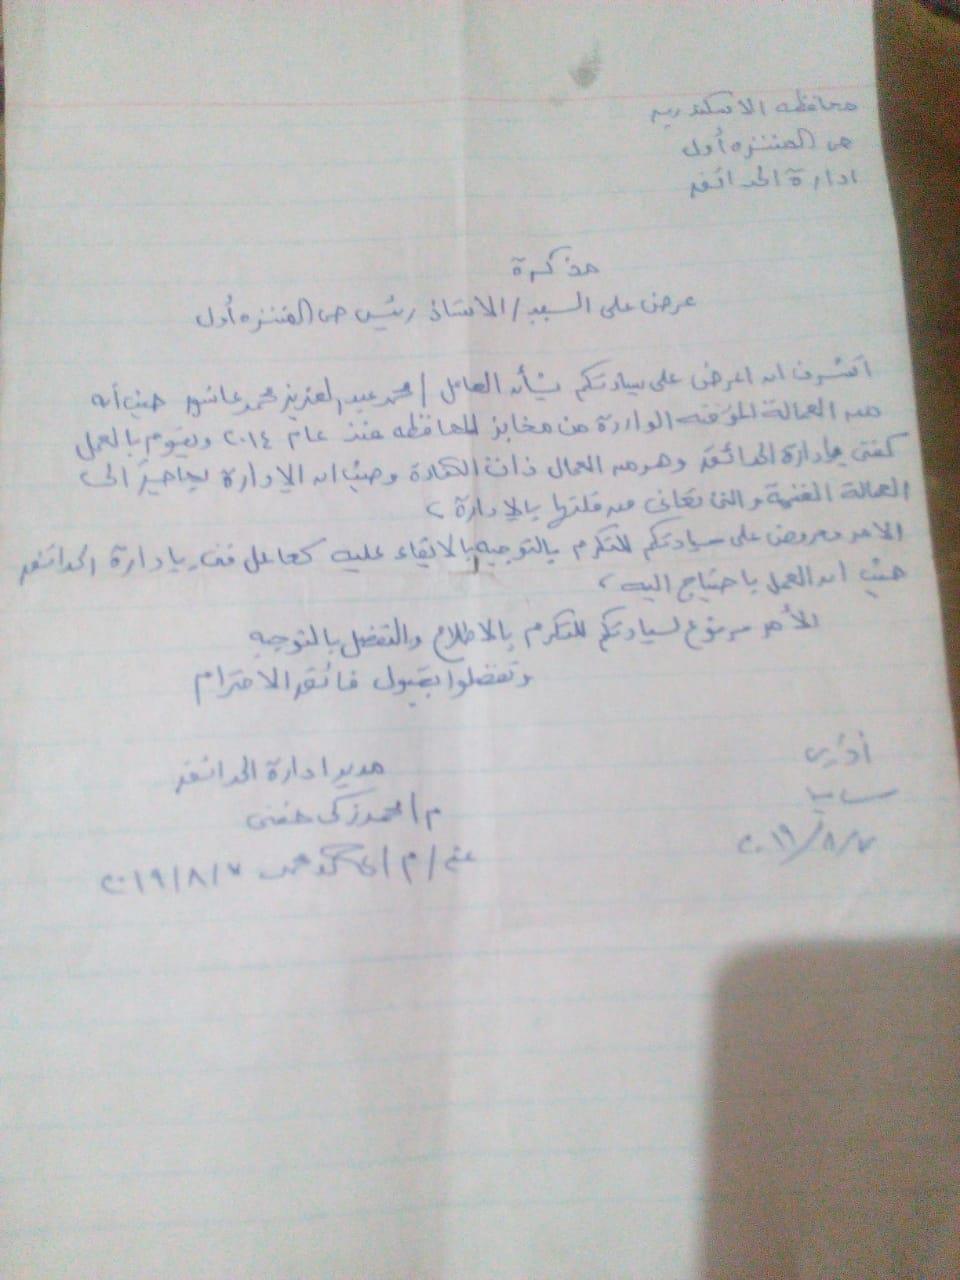 محافظه الاسكندريه
حى المنتزه أول
ادارة الحدائق
مذكرة
عرض على السيد / الاستاذ رئيس حى المنتزه أول
اتشرف ان اعرض على سيادتكم بشأن العامل / محمد عبد العزيز محمد عاشور حيث أنه
من العمالة المؤقته الواردة من مخابز المحافظه منذ عام ٢٠١٤ ويقوم بالعمل
كفنى بإدارة الحدائق وهو من العمال ذات الكفاءة وحيث ان الإدارة بحاجة إلى
العمالة الفنية والتى تعانى من قلتها بالإدارة ،
الامر معروض على سيادتكم للتكرم بالتوجيه بالابقاء عليه كعامل فنى بادارة الحدائق
حيث ان العمل باحتياج اليه ،
الأمر مرفوع لسيادتكم للتكرم بالاطلاع والتفضل بالتوجيه
وتفضلوا بقبول فائق الاحترام
مدير ادارة الحدائق
م / محمد زكى حفنى
٢٠١٩/٨/٧
ادارى
٢٠١٩/٨/٧